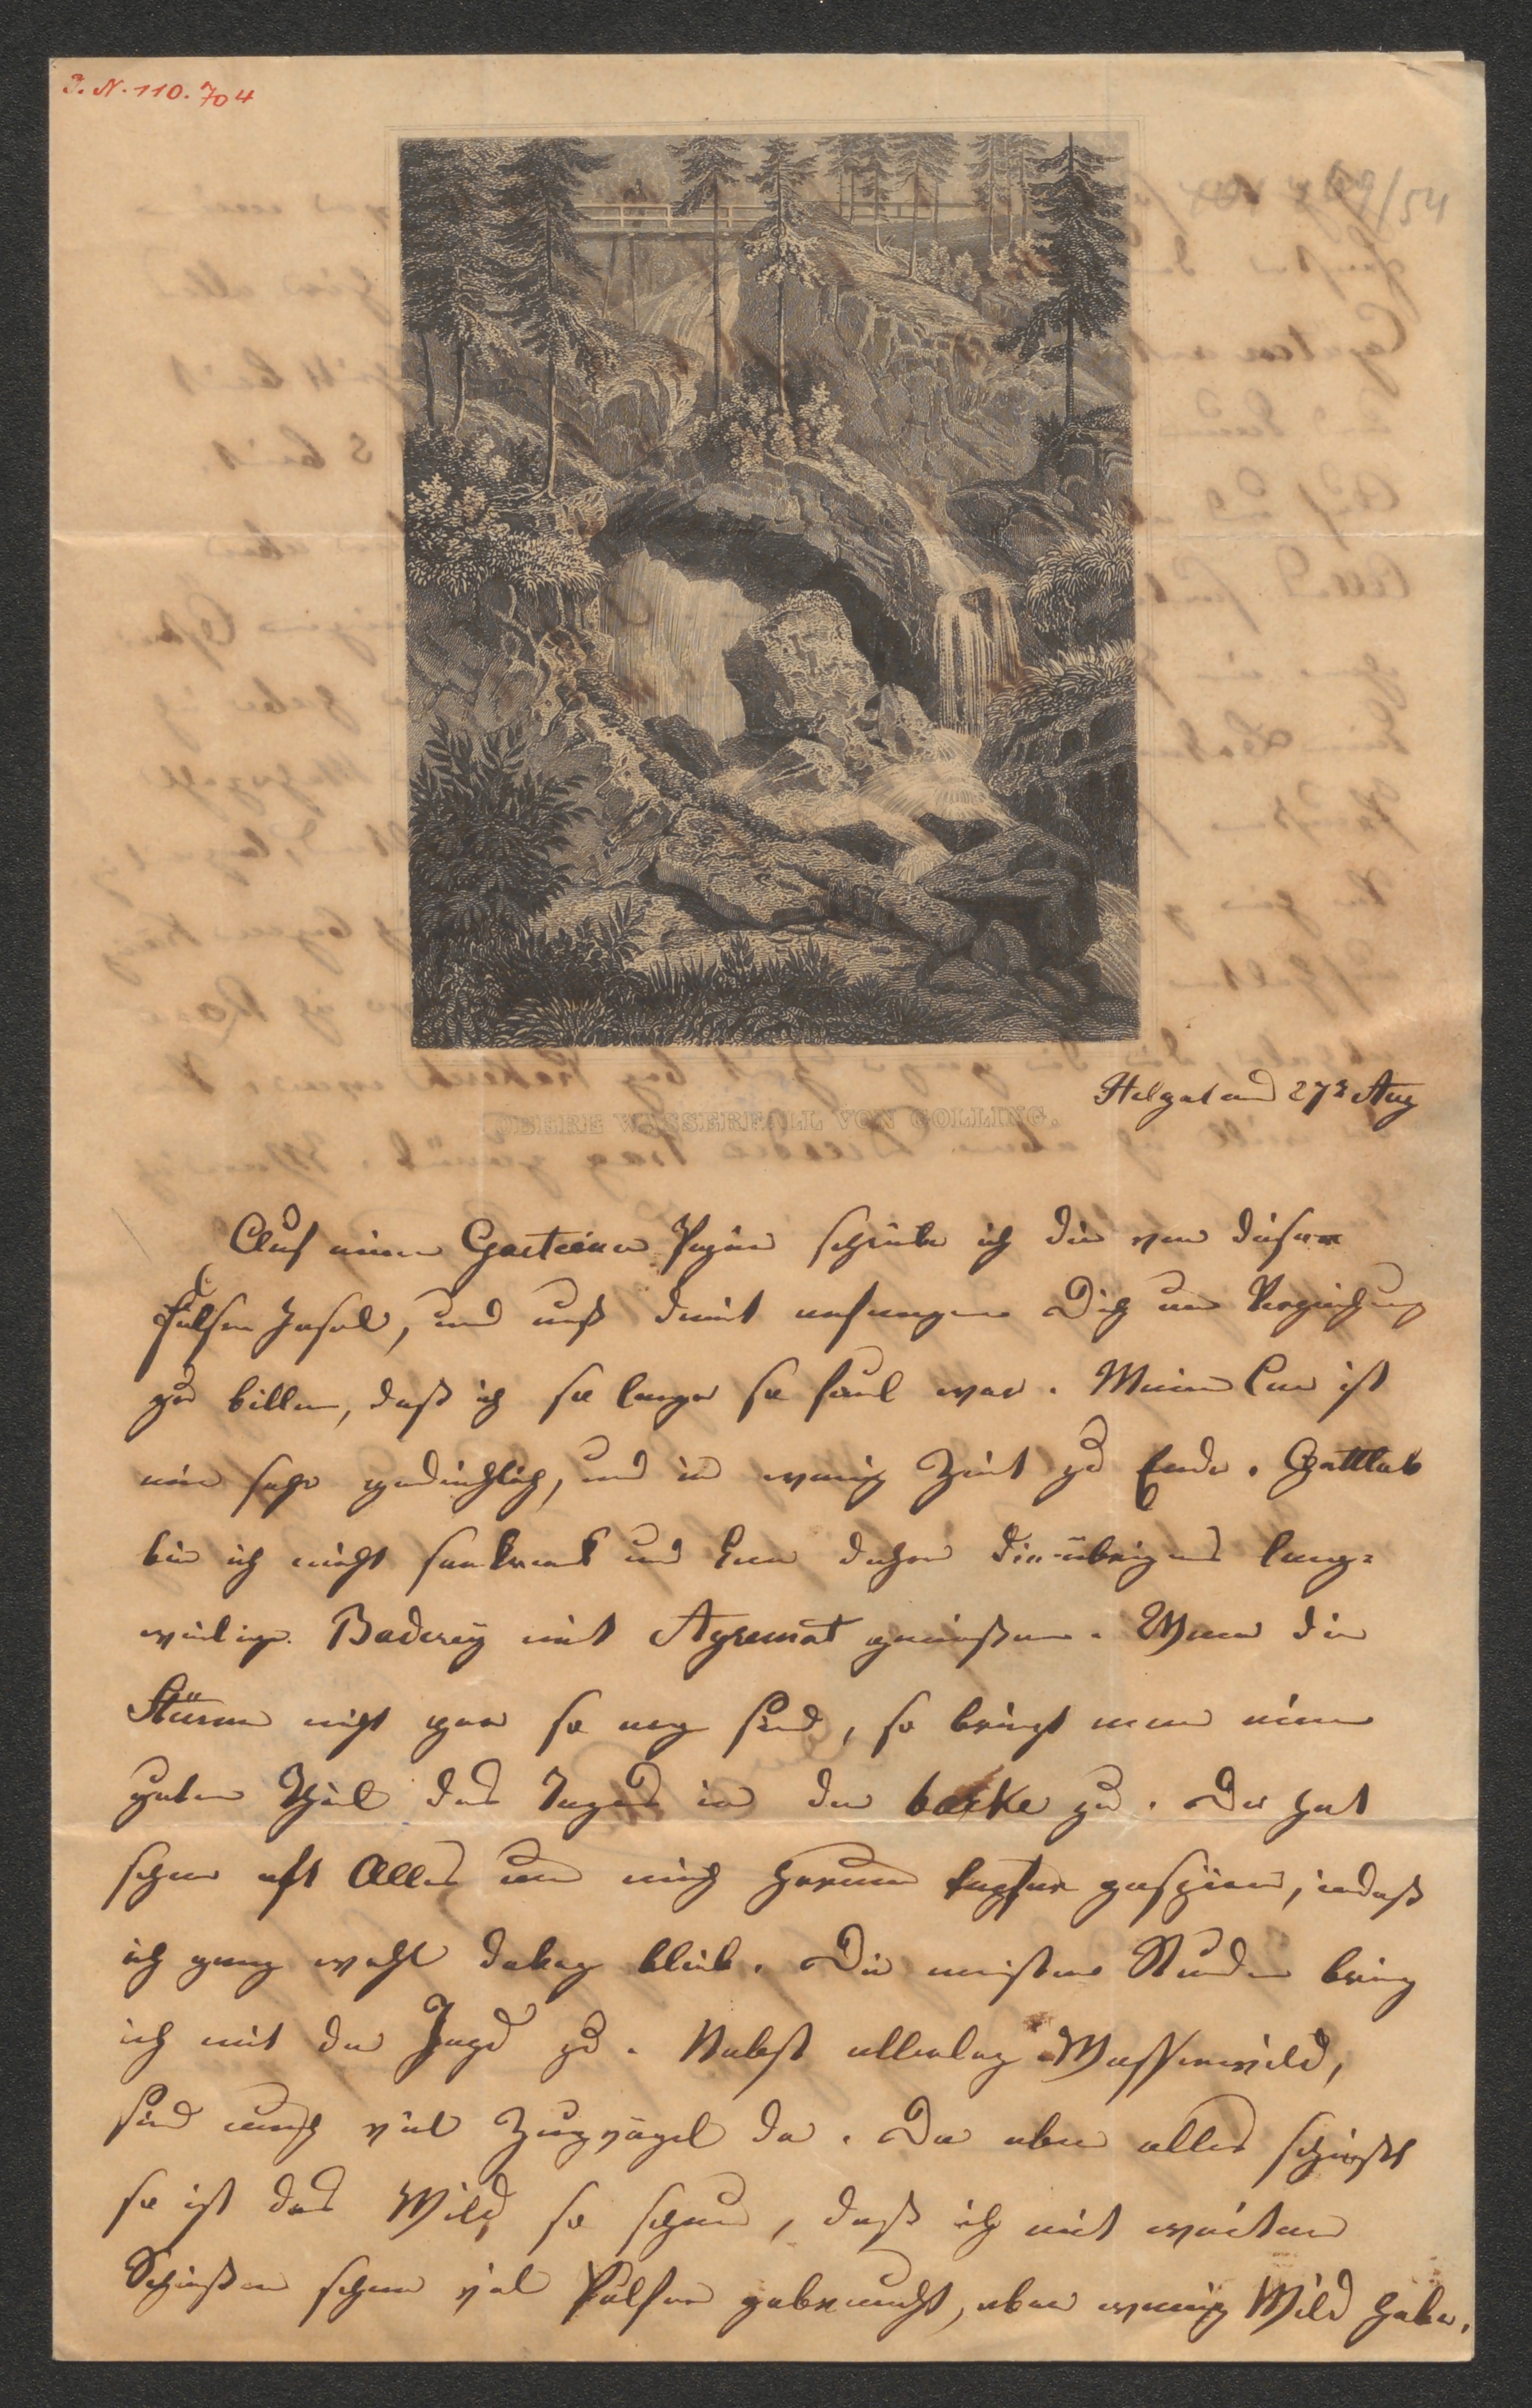 I. N. 110.704
69/54
OBERE WASSERFALL VON GOLLING.
Helgoland 27t Aug
Auf einem Gasteiner Papier schreibe ich dir von dieser
Felsen Insel, und muß damit anfangen Dich um Verzeihung
zu bitten, daß ich so lange so faul war. Meine Cur ist
mir sehr gedeihlich, und in wenig Zeit zu Ende. Gottlob
bin ich nicht seekrank und kann daher die übrigens lang=
weilige Baderey mit Agrement genießen. Wenn die
Stürme nicht gar so arg sind, so bringt man einen
guten Theil des Tages in der barke zu. Da hat
schon oft Alles um mich herum tapfer gespieen, indeß
ich ganz wohl dabey blieb. Die meisten Stunden bring
ich mit der Jagd zu. Nebst allerley Wasserwild,
sind auch viel Zugvögel da. Da aber alles schießt
so ist das Wild so scheu, daß ich mit weiten
Schießen schon viel Pulfer gebraucht, aber wenig Wild habe.